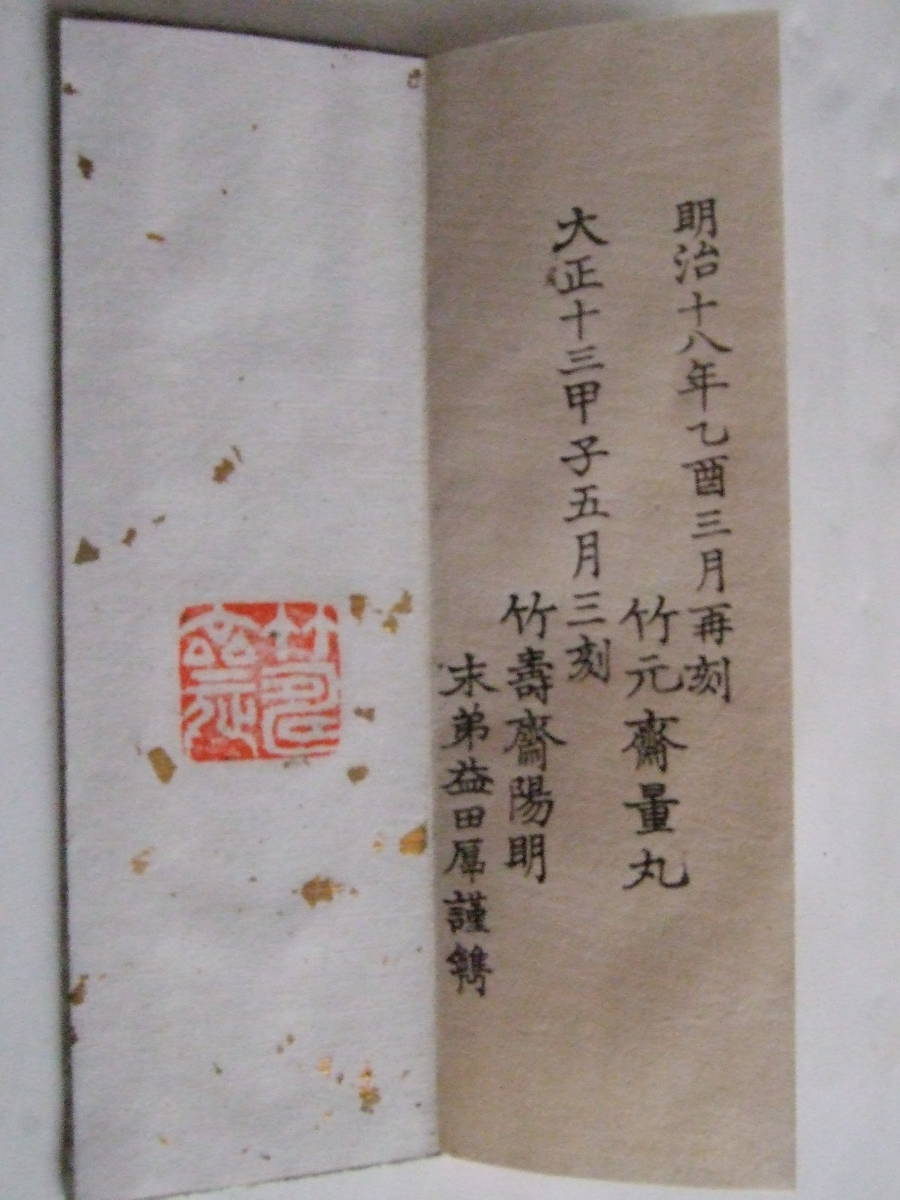 明治十八年乙酉三月再刻
竹元齋量丸
大正十三甲子五月三刻
竹壽齋陽明
末弟益田厚謹鐫